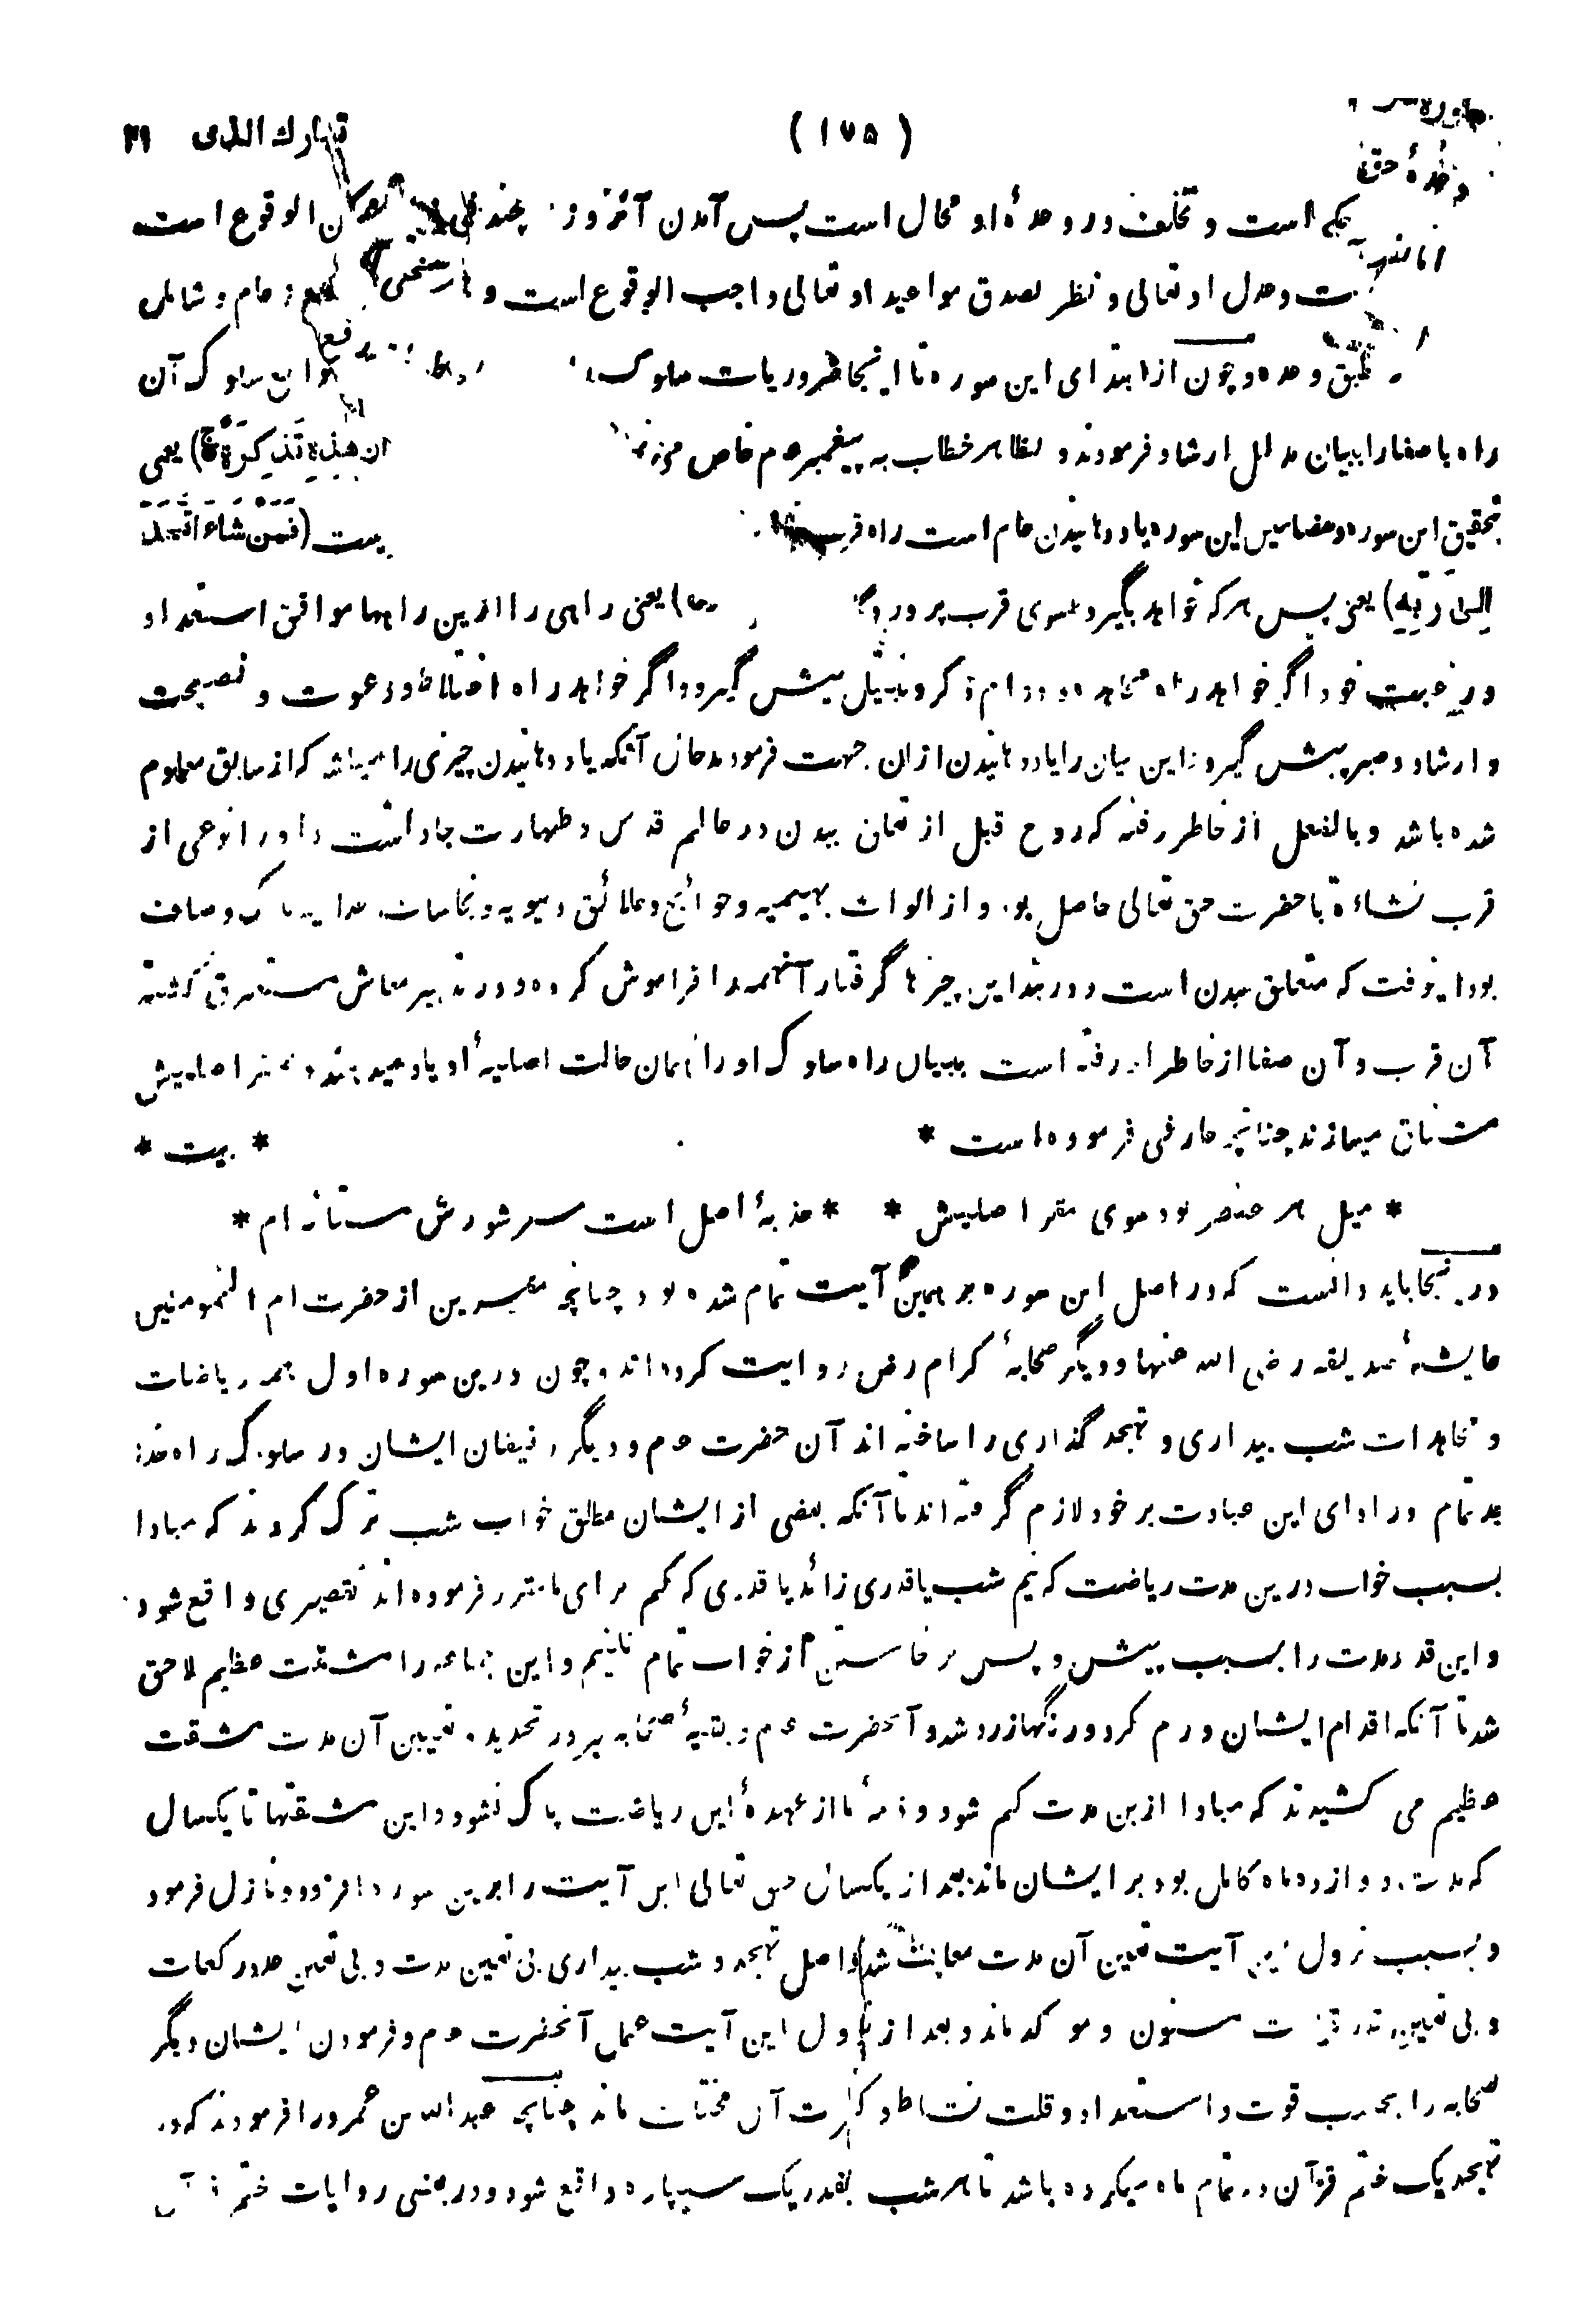 تبارك الذی ۲۹ (۱۷۵)
است و تخلف در وعدهٔ او محال است پس آمدن آنروز الوقوع است
وعدل او تعالی و نظر بصدق مواعید او تعالی واجب الوقوع است و عام و شامل
وعده و چون از ابتدای این سوره تا اینجا ضروریات سلوک سلوک آن
راه با صفا را ببیان مدلل ارشاد فرمودند و بظاهر خطاب به پیغمبر عم خاص ان هٰذِهٖ تَذكِرَةٌ) یعنی
تحقیق این سوره و مضامین این سوره یاد دهانیدن عام است راه قرب (فَمَنْ شَاءَ اتَّخَذَ
اِلىٰ رَبِّهٖ) یعنی پس هر که خواهد بگیرد بسوی قرب پروردگار یعنی راهی را ازین راهها موافق استعداد
و رغبت خود اگر خواهد راه مجاهده و دوام ذکر و تبتل پیش گیرد و اگر خواهد راه اختلاط و دعوت و نصیحت
و ارشاد و صبر پیش گیرد و این بیان را یاد دهانیدن ازان جهت فرمودند آنکه یاد دهانیدن چیزی را میباشد که از سابق معلوم
شده باشد و بالفعل از خاطر رفته که روح قبل از تعلق ببدن در عالم قدس و طهارت جا داشت و او را نوعی از
قرب نشاءة با حضرت حق تعالی حاصل بود و از الواث بهیمیه و حوائج و علائق دنیویه و نجاسات پاک و صاف
بود اینوقت که متعلق ببدن است و در بند این چیزها گرفتار آنهمه را فراموش کرده و در تدبیر معاش مستغرق گشته
آن قرب و آن صفا از خاطر او رفته است ببیان راه سلوک او را همان حالت اصلیهٔ او یاد میدهند و اصلیش
مشتاق میسازند چنانچه عارفی فرموده است * * بیت *
* میل هر عنصر بود سوی مقر اصلیش * * جذبهٔ اصل است سر شورش مستانه ام *
درینجا باید دانست که در اصل این سوره بر همین آیت تمام شده بود چنانچه مفسرین از حضرت ام المومنین
عایشهٔ صدیقه رضی الله عنها و دیگر صحابهٔ کرام رض روایت کرده اند و چون درین سوره اول همه ریاضات
و مجاهدات شب بیداری و تهجد گذاری را ساخته اند آن حضرت عم و دیگر رفیقان ایشان در سلوک راه خدا
بد تمام در ادای این عبادت بر خود لازم گرفته اند تا آنکه بعضی از ایشان مطلق خواب شب ترک کردند که مبادا
بسبب خواب درین مدت ریاضت که نیم شب یا قدری زائد یا قدری که کم برای ما مقرر فرموده اند تقصیری واقع شود
و این قدر مدت را بسبب پیش و پس برخاستن از خواب تمام نکنیم و این جماعه را مشقت عظیم لاحق
شد تا آنکه اقدام ایشان ورم کرد و رنگها زرد شد و آنحضرت عم و بقیهٔ صحابه بر ور تحدید و تعیین آن مدت مشقت
عظیم می کشیدند که مبادا ازین مدت کم شود و ذمهٔ ما از عهدهٔ این ریاضت پاک نشود و این مشقتها تا یکسال
که مدت دوازده ماه کامل بود بر ایشان ماند بعد از یکسال حق تعالی این آیت را درین سوره افزوده نازل فرمود
و بسبب نزول این آیت تعیین آن مدت معاف شد و اصل تهجد و شب بیداری بی تعیین مدت و بی تعین عدد رکعات
و بی تعیین قدر قراءت مسنون و موکد ماند و بعد از نزول این آیت عمل آنحضرت عم و فرمودن ایشان دیگر
صحابه را بحسب قوت و استعداد و قلت نشاط و کثرت آن مختلف ماند چنانچه عبد الله بن عمرو را فرمودند که در
تهجد یک ختم قرآن در تمام ماه میکرده باشد تا هر شب بقدر یک سیپاره واقع شود و در بعضی روایات ختم